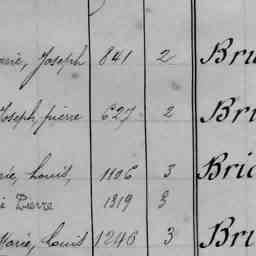 arie, Joseph 841 2 Bri
Joseph pierre 627 2 Bri
rie, Louis, 1106 3 Bric
ie Pierre 1319 3
Marie, Louis 1246 3 Bri